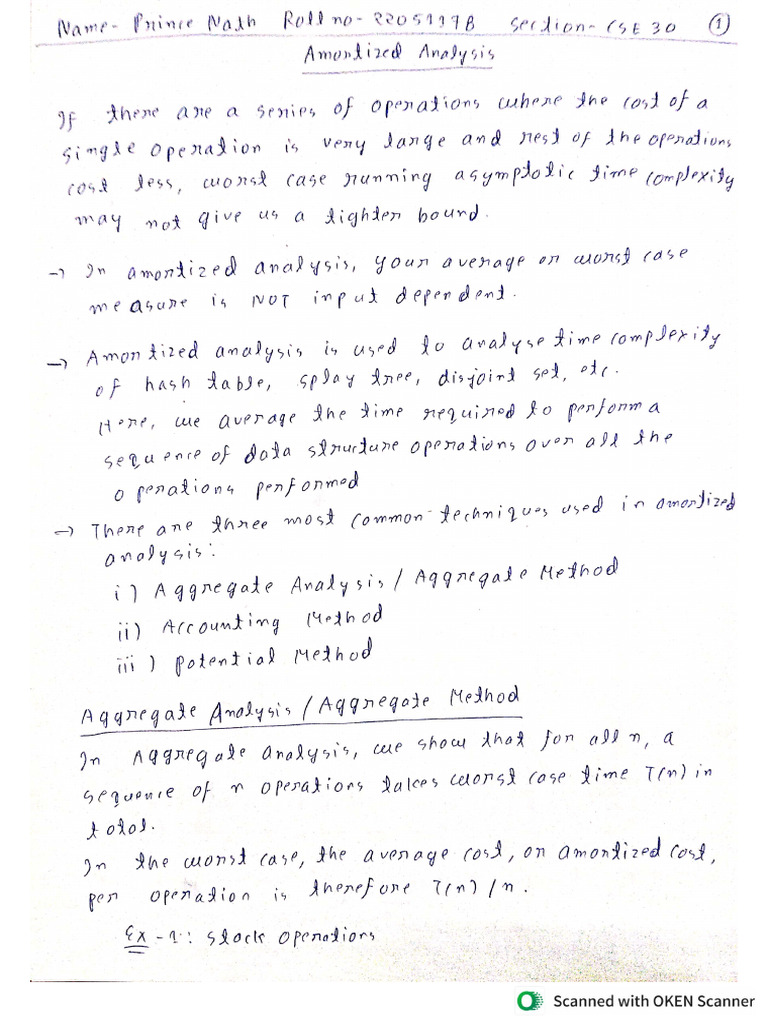 Name- Prince Nath Roll no- 2205197B Section- CSE 30 1
Amortized Analysis
If there are a series of operations where the cost of a
single operation is very large and rest of the operations
cost less, worst case running asymptotic time complexity
may not give us a tighter bound.
→ In amortized analysis, your average or worst case
measure is NOT input dependent.
→ Amortized analysis is used to analyse time complexity
of hash table, splay tree, disjoint set, etc.
Here, we average the time required to perform a
sequence of data structure operations over all the
operations performed
→ There are three most common techniques used in amortized
analysis:
i) Aggregate Analysis / Aggregate Method
ii) Accounting Method
iii) Potential Method
Aggregate Analysis / Aggregate Method
In Aggregate analysis, we show that for all n, a
sequence of n operations takes worst case time T(n) in
total.
In the worst case, the average cost, or amortized cost,
per operation is therefore T(n)/n.
Ex-1: Stack Operations
Scanned with OKEN Scanner